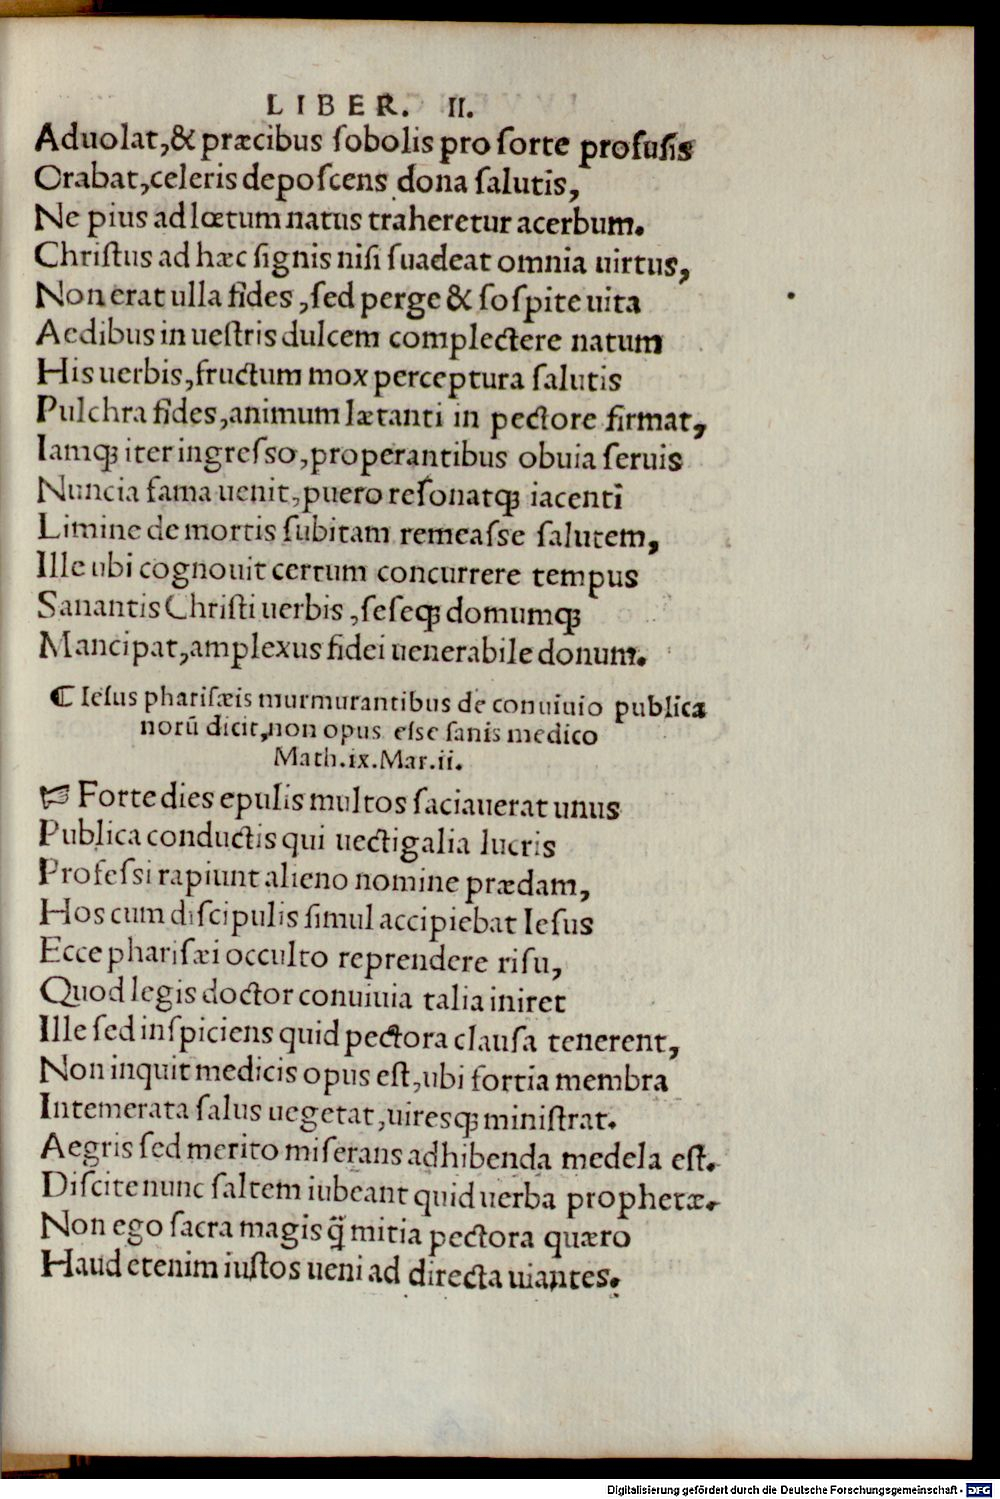 LIBER. II.
Aduolat,& præcibus ſobolis pro ſorte profuſis
Orabat,celeris depoſcens dona ſalutis,
Ne pius ad lœtum natus traheretur acerbum.
Chriſtus ad hæc ſignis niſi ſuadeat omnia uirtus,
Non erat ulla fides, ſed perge & ſoſpite uita
Aedibus in ueſtris dulcem complectere natum
His uerbis,fructum mox perceptura ſalutis
Pulchra fides,animum lætanti in pectore firmat,
Iamqꝫ iter ingreſſo,properantibus obuia ſeruis
Nuncia fama uenit,puero reſonatqꝫ iacenti
Limine de mortis ſubitam remeaſſe ſalutem,
Ille ubi cognouit certum concurrere tempus
Sanantis Chriſti uerbis, ſeſeqꝫ domumqꝫ
Mancipat,amplexus fidei uenerabile donum.
¶ Ieſus phariſæis murmurantibus de conuiuio publica
norū dicit,non opus eſſe ſanis medico
Math.ix.Mar.ii.
☞ Forte dies epulis multos ſaciauerat unus
Publica conductis qui uectigalia lucris
Profeſsi rapiunt alieno nomine prædam,
Hos cum diſcipulis ſimul accipiebat Ieſus
Ecce phariſæi occulto reprendere riſu,
Quod legis doctor conuiuia talia iniret
Ille ſed inſpiciens quid pectora clauſa tenerent,
Non inquit medicis opus eſt,ubi fortia membra
Intemerata ſalus uegetat,uiresqꝫ miniſtrat.
Aegris ſed merito miſerans adhibenda medela eſt.
Diſcite nunc ſaltem iubeant quid uerba prophetæ.
Non ego ſacra magis q̃ mitia pectora quæro
Haud etenim iuſtos ueni ad directa uiantes.
Digitalisierung gefördert durch die Deutsche Forschungsgemeinschaft - DFG